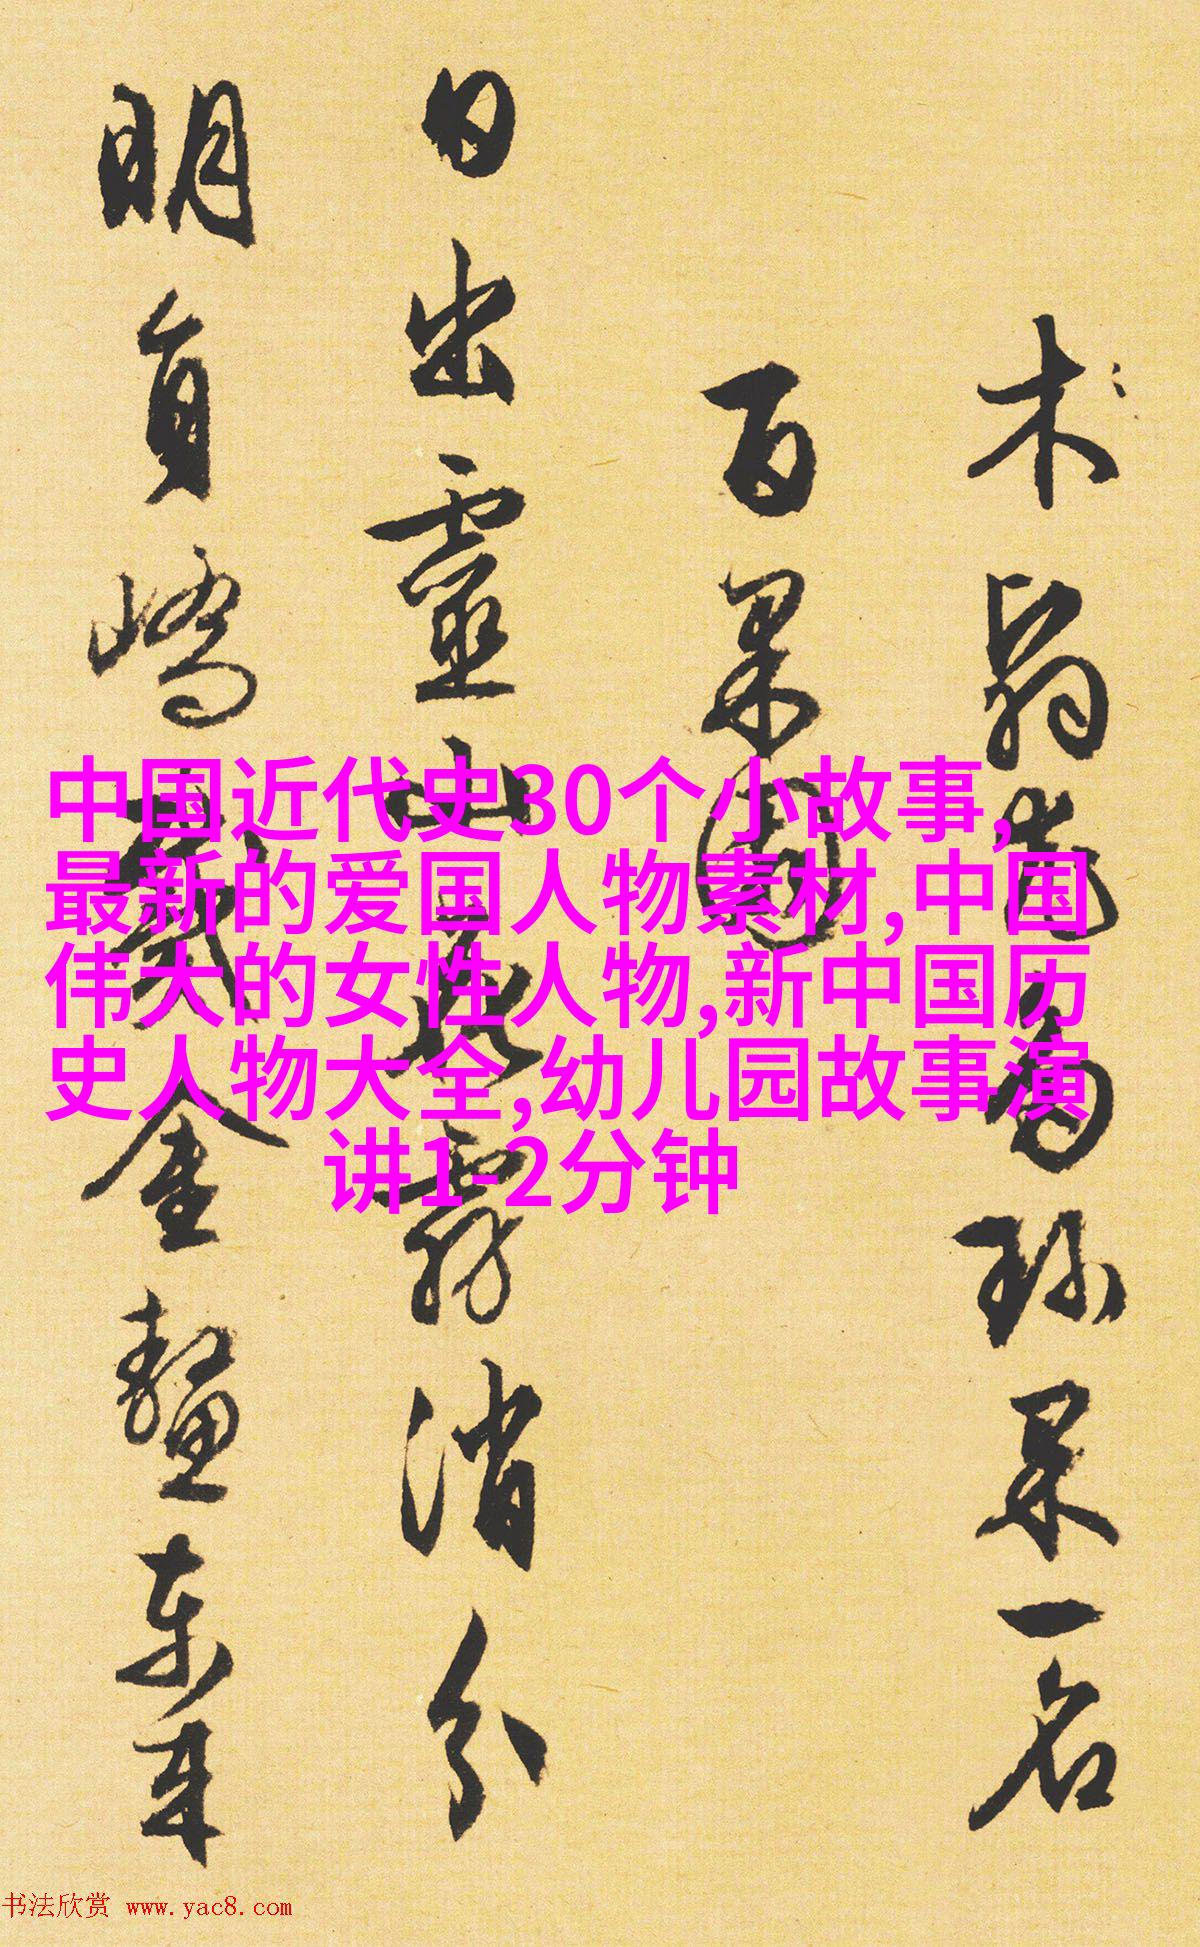 中国近代史30个小故事,
最新的爱国人物素材,中国
伟大的女性人物,新中国历
史人物大全,幼儿园故事演
讲1-2分钟
珍果一名
百果園
日出靈山花霧消分
明員嶠戴金鼇東來
书法欣赏 www.yac8.com